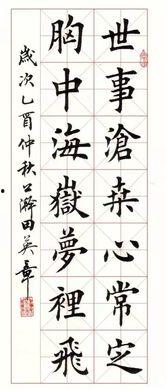 世事滄桒心常定
胸中海嶽夢裡飛
歲次乙酉仲秋田英章